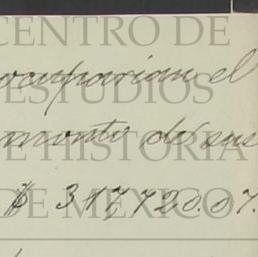 CENTRO DE
ocuparian el
ESTUDIOS
monto de sus
DE HISTORIA
$ 317,720.07.
DE MEXICO